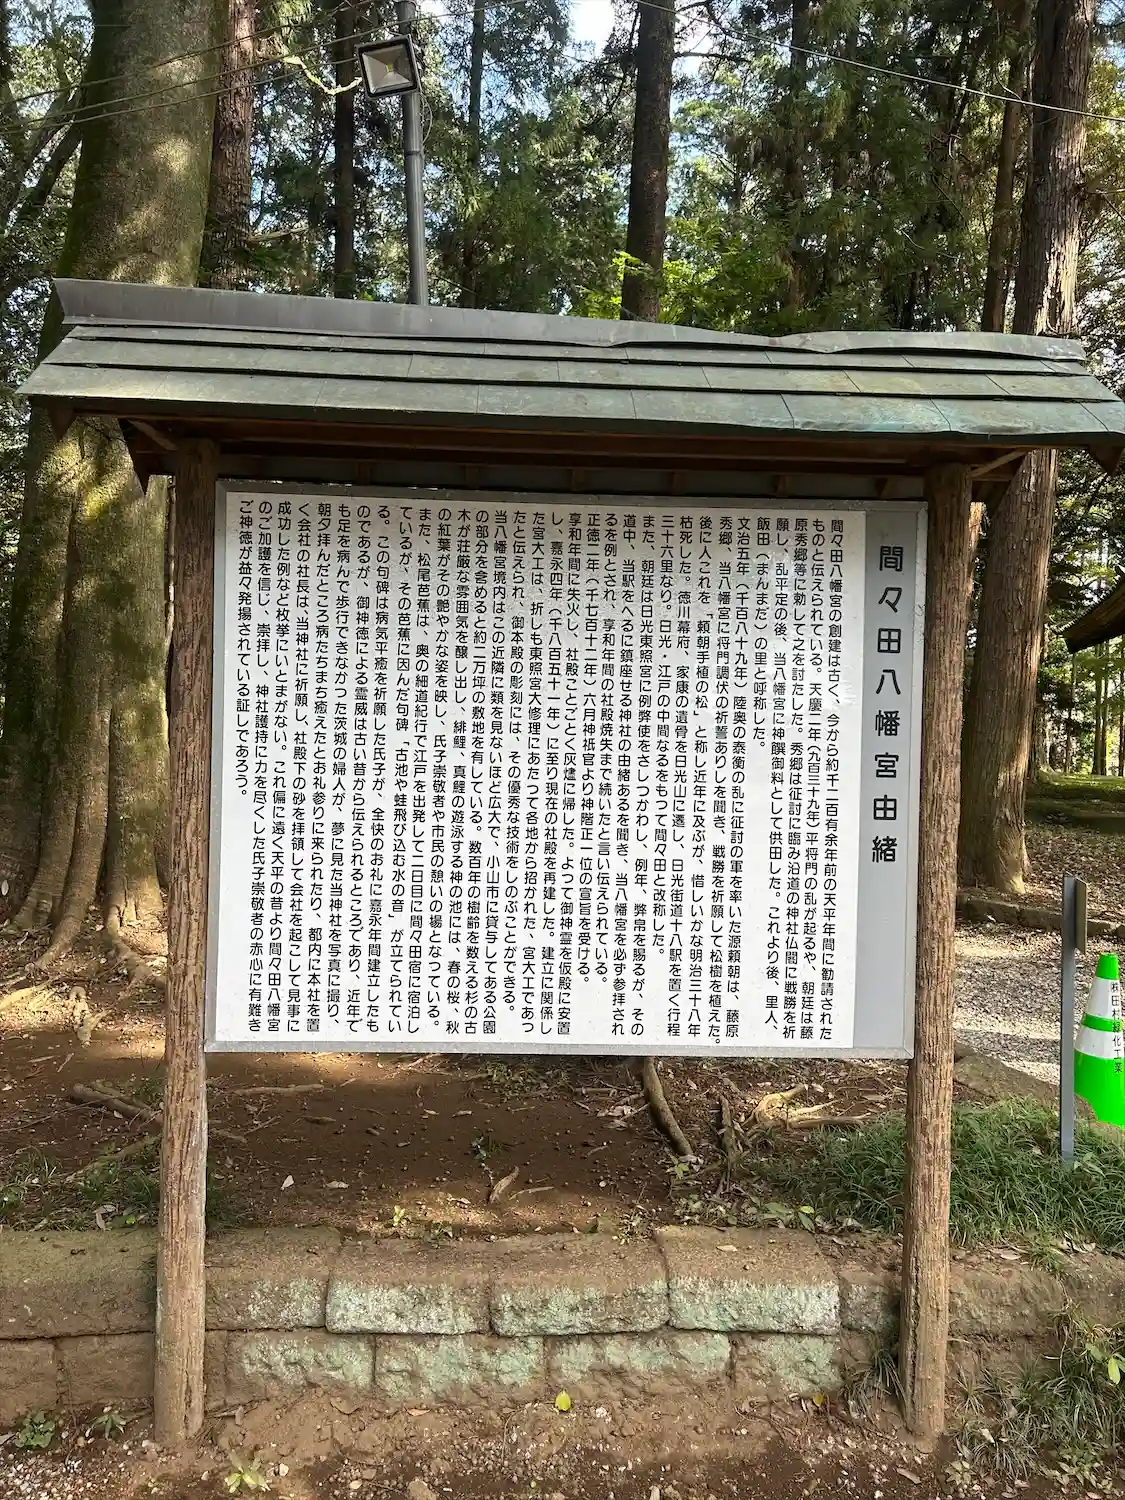 間々田八幡宮由緒
間々田八幡宮の創建は古く、今から約千二百有余年前の天平年間に勧請された
ものと伝えられている。天慶二年（九百三十九年）平将門の乱が起るや、朝廷は藤
原秀郷等に勅して之を討たした。秀郷は征討に臨み沿道の神社仏閣に戦勝を祈
願し、乱平定の後、当八幡宮に神饌御料として供田した。これより後、里人、
飯田（まんまだ）の里と呼称した。
文治五年（千百八十九年）陸奥の泰衡の乱に征討の軍を率いた源頼朝は、藤原
秀郷、当八幡宮に将門調伏の祈誓ありしを聞き、戦勝を祈願して松樹を植えた。
後に人これを「頼朝手植の松」と称し近年に及ぶが、惜しいかな明治三十八年
枯死した。徳川幕府、家康の遺骨を日光山に遷し、日光街道十八駅を置く行程
三十六里なり。日光・江戸の中間なるをもつて間々田と改称した。
また、朝廷は日光東照宮に例弊使をさしつかわし、例年、弊帛を賜るが、その
道中、当駅をへるに鎮座せる神社の由緒あるを聞き、当八幡宮を必ず参拝され
るを例とされ、享和年間の社殿焼失まで続いたと言い伝えられている。
正徳二年（千七百十二年）六月神祇官より神階正一位の宣旨を受ける。
享和年間に失火し、社殿ことごとく灰燼に帰した。よつて御神霊を仮殿に安置
し、嘉永四年（千八百五十一年）に至り現在の社殿を再建した。建立に関係し
た宮大工は、折しも東照宮大修理にあたつて各地から招かれた、宮大工であつ
たと伝えられ、御本殿の彫刻には、その優秀な技術をしのぶことができる。
当八幡宮境内はこの近隣に類を見ないほど広大で、小山市に貸与してある公園
の部分を含めると約二万坪の敷地を有している。数百年の樹齢を数える杉の古
木が荘厳な雰囲気を醸し出し、緋鯉、真鯉の遊泳する神の池には、春の桜、秋
の紅葉がその艶やかな姿を映し、氏子崇敬者や市民の憩いの場となつている。
また、松尾芭蕉は、奥の細道紀行で江戸を出発して二日目に間々田宿に宿泊し
ているが、その芭蕉に因んだ句碑「古池や蛙飛び込む水の音」が立てられてい
る。この句碑は病気平癒を祈願した氏子が、全快のお礼に嘉永年間建立したも
のであるが、御神徳による霊威は古い昔から伝えられるところであり、近年で
も足を病んで歩行できなかつた茨城の婦人が、夢に見た当神社を写真に撮り、
朝夕拝んだところ病たちまち癒えたとお礼参りに来られたり、都内に本社を置
く会社の社長は、当神社に祈願し、社殿下の砂を拝領して会社を起こして見事に
成功した例など枚挙にいとまがない。これ偏に遠く天平の昔より間々田八幡宮
のご加護を信じ、崇拝し、神社護持に力を尽くした氏子崇敬者の赤心に有難き
ご神徳が益々発揚されている証しであろう。
㈱田村緑化工業